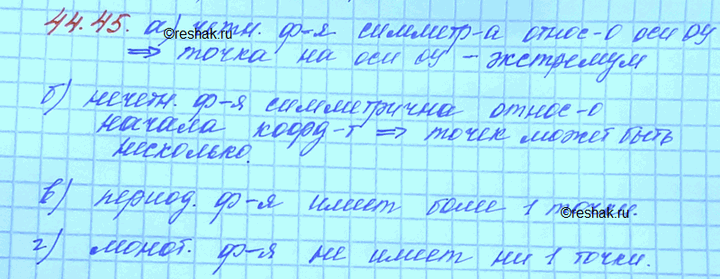 44.45. а) четн. ф-я симметр-а относ-о оси OY
⇒ точка на оси OY – экстремум
б) нечетн. ф-я симметрична относ-о
начала коорд-т ⇒ точек может быть
несколько.
©reshak.ru
в) период. ф-я имеет более 1 точки.
©reshak.ru
г) монот. ф-я не имеет ни 1 точки.